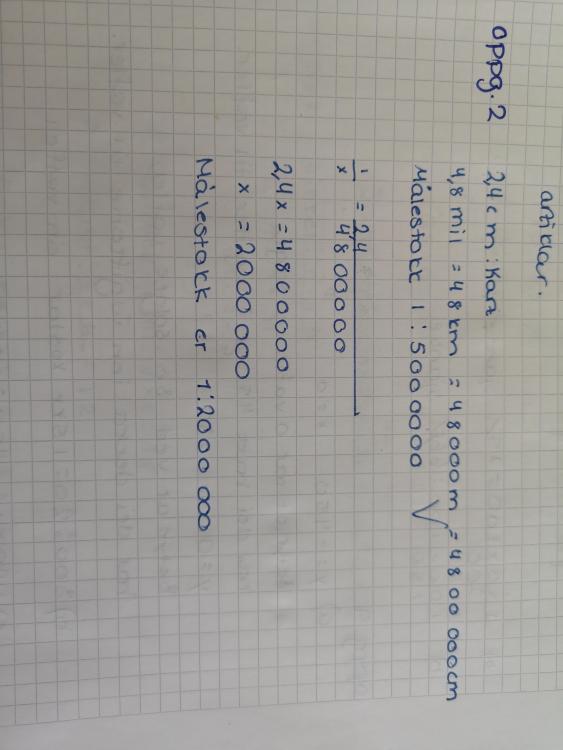 artiklar.
Oppg. 2
2,4 cm : Kart
4,8 mil = 48 km = 48000m = 4800 000cm
Målestokk 1 : 5000000
1/x = 2,4/4800000
2,4x = 4800000
x = 2000 000
Målestokk er 1:2000 000